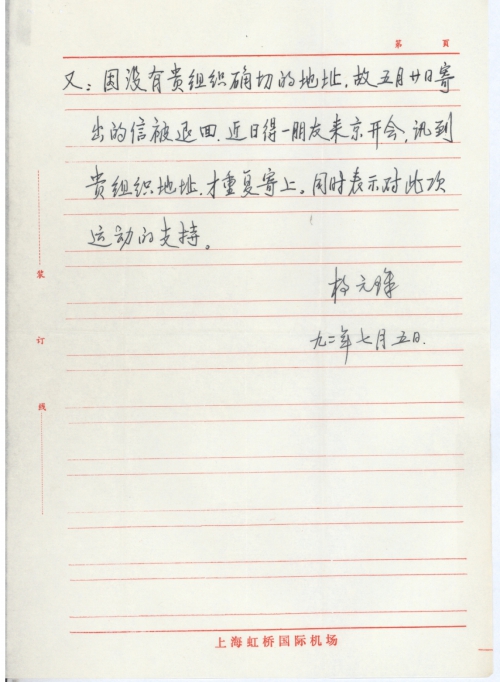 第 頁
又：因没有贵组织确切的地址，故五月廿日寄
出的信被退回。近日得一朋友来京开会，讯到
贵组织地址，才重复寄上。同时表示对此项
运动的支持。
九二年七月五日.
装
订
线
上海虹桥国际机场